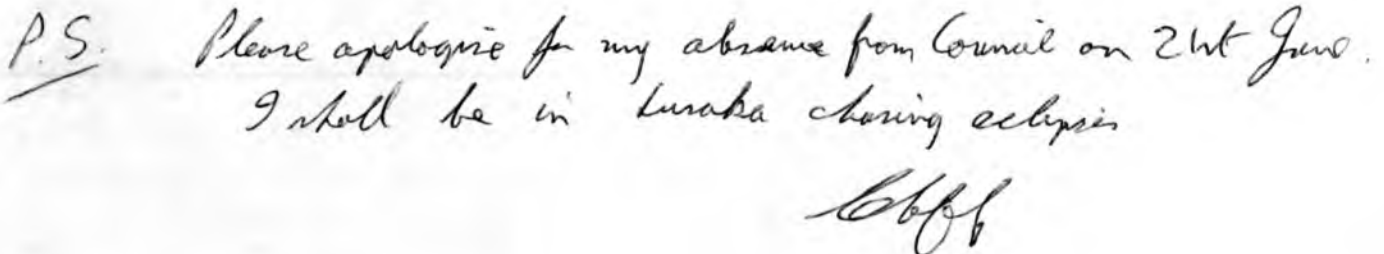 P.S. Please apologise for my absence from Council on 21st June.
I shall be in Lusaka chasing eclipses
Cliff